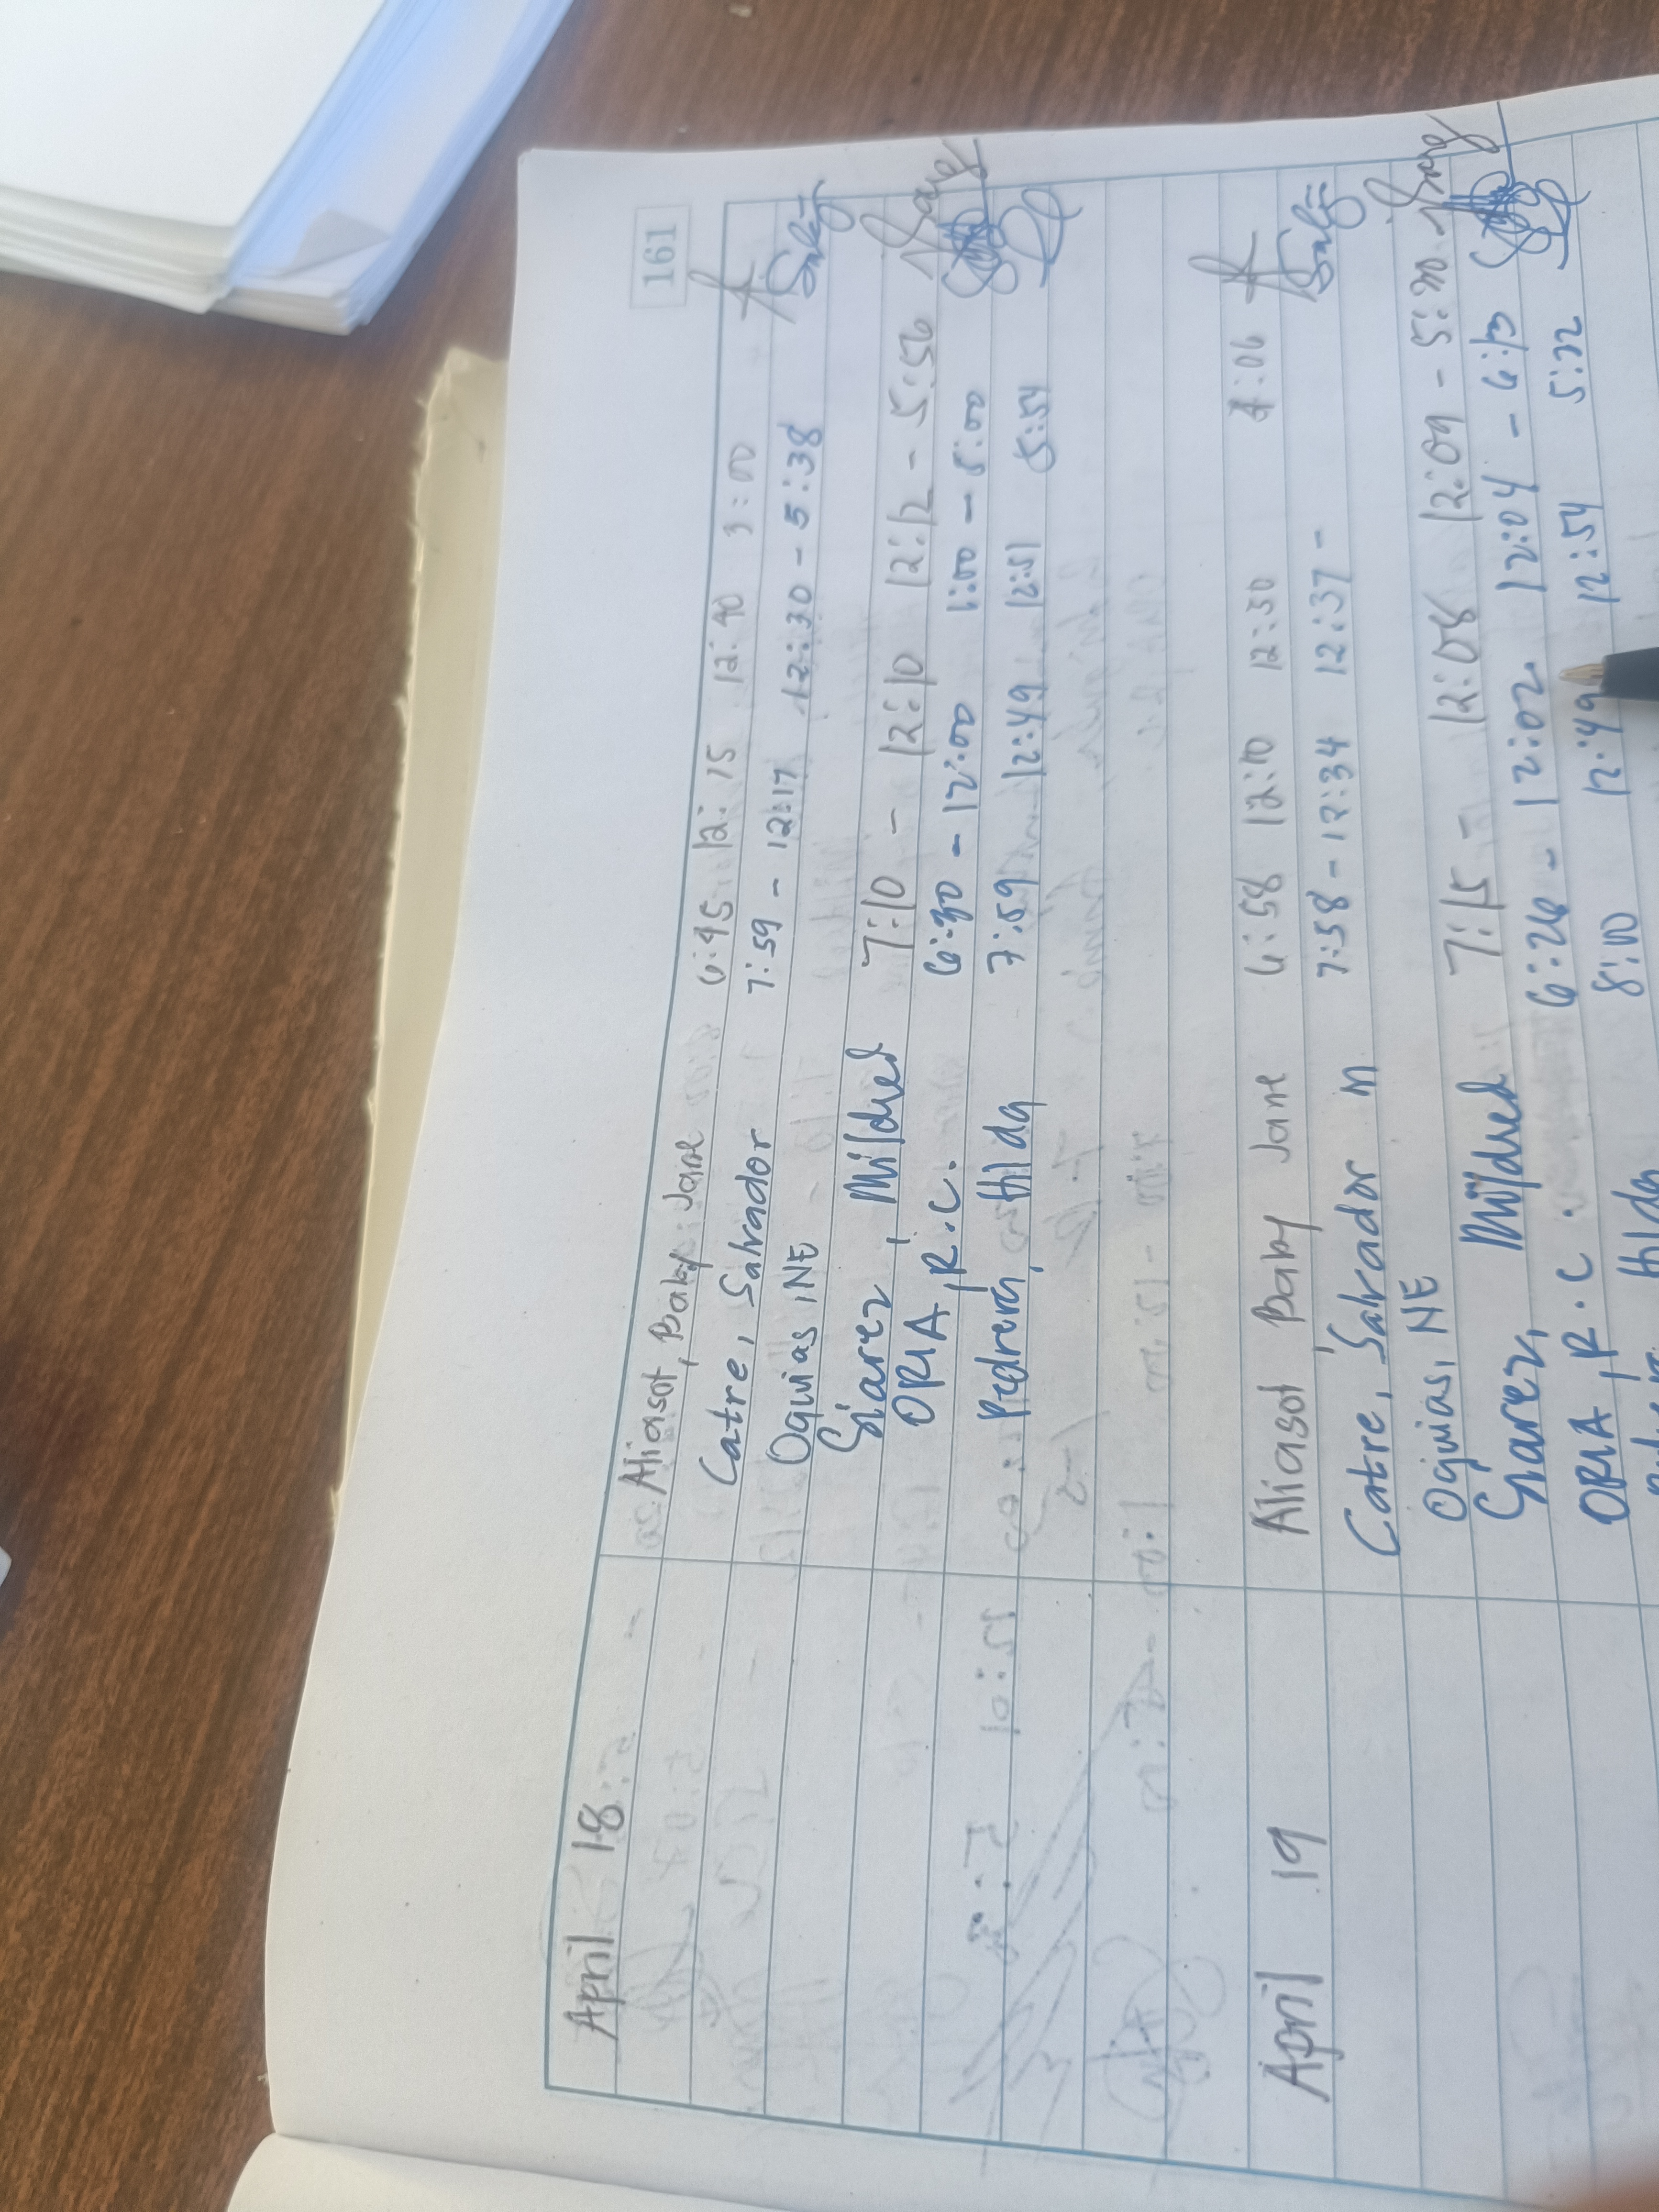 161
April 18
Aliasot, Baby Jane 6:45 12:15 12:40 3:00
Catre, Salvador 7:59 - 12:17 12:30 - 5:38
Oquias, NE
Giarez, Mildred 7:10 - 12:10 12:12 - 5:56
ORIA, R.C. 6:30 - 12:00 1:00 - 5:00
Pedrera, Hilda 7:59 12:49 12:51 5:54
April 19
Aliasot Baby Jane 6:58 12:10 12:30 4:06
Catre, Salvador M 7:58 - 12:34 12:37 -
Oquias, NE
Giarez, Mildred 7:15 - 12:08 12:09 - 5:30
ORIA, R.C. 6:26 - 12:02 12:04 - 6:13
Hilda 8:00 12:49 12:54 5:22